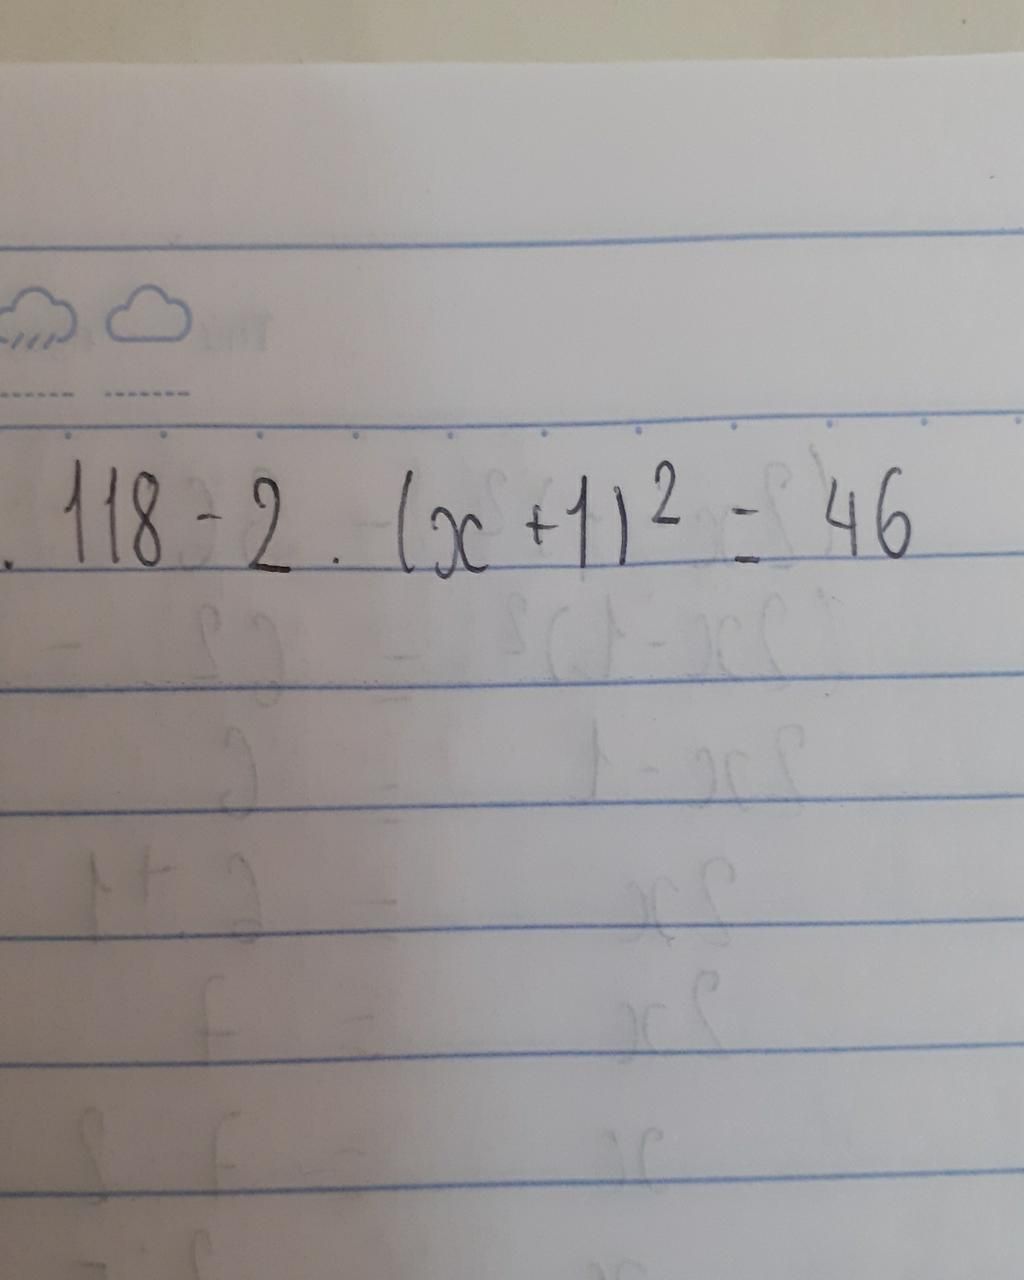 . 118 - 2 . (x + 1)² = 46